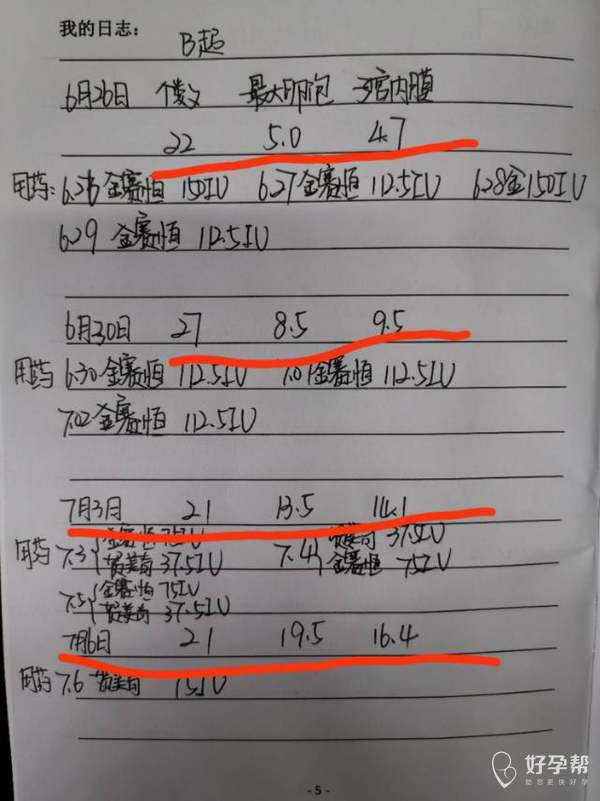 我的日志:
B起
6月26日 个数 最大卵泡 子宫内膜
22 5.0 4.7
用药: 6.26 金赛恒 150IU 6.27 金赛恒 112.5IU 6.28金150IU
6.29 金赛恒 112.5IU
6月30日 27 8.5 9.5
用药 6.30 金赛恒 112.5IU 7.01金赛恒 112.5IU
7.02 金赛恒 112.5IU
7月3日 21 13.5 14.1
金赛恒 75IU 贺美奇 37.5IU
用药 7.3 贺美奇 37.5IU 7.4 金赛恒 75IU
7.5 金赛恒 75IU
贺美奇 37.5IU
7月6日 21 19.5 16.4
用药 7.6 贺美奇 75IU
- 5 -
好孕帮
助您更快好孕